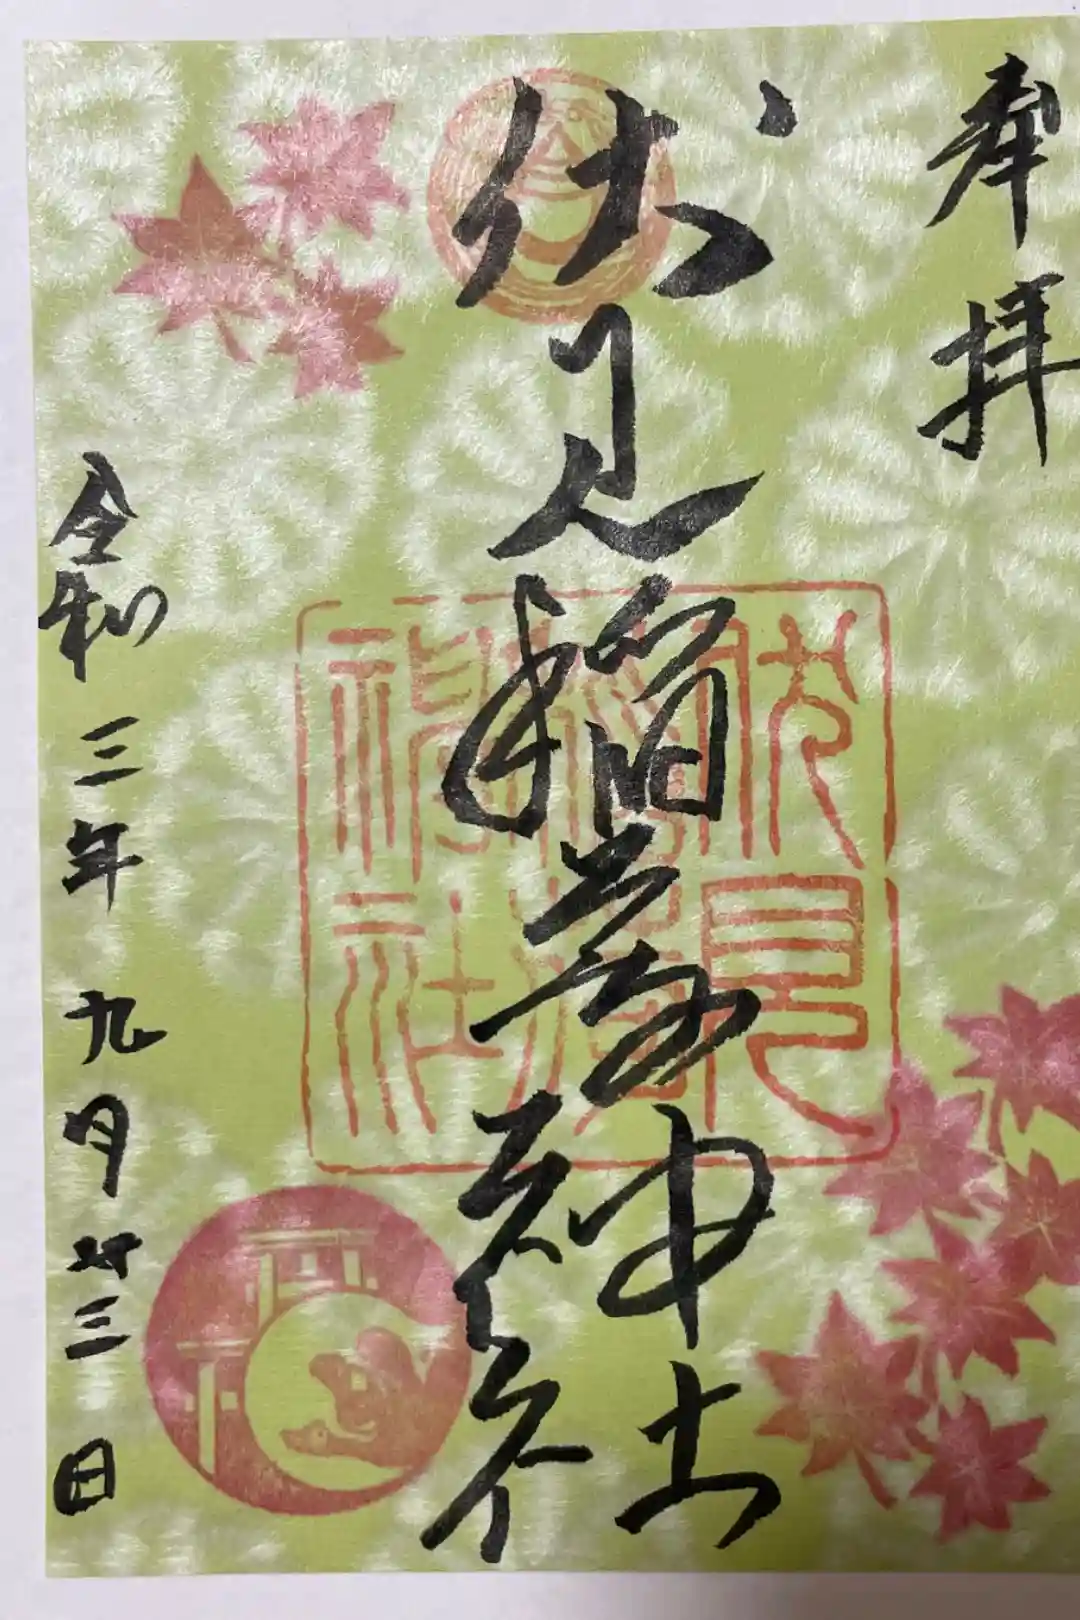 奉拝
伏見稲荷神社
伏見
稲荷
神社
令和三年九月廿三日